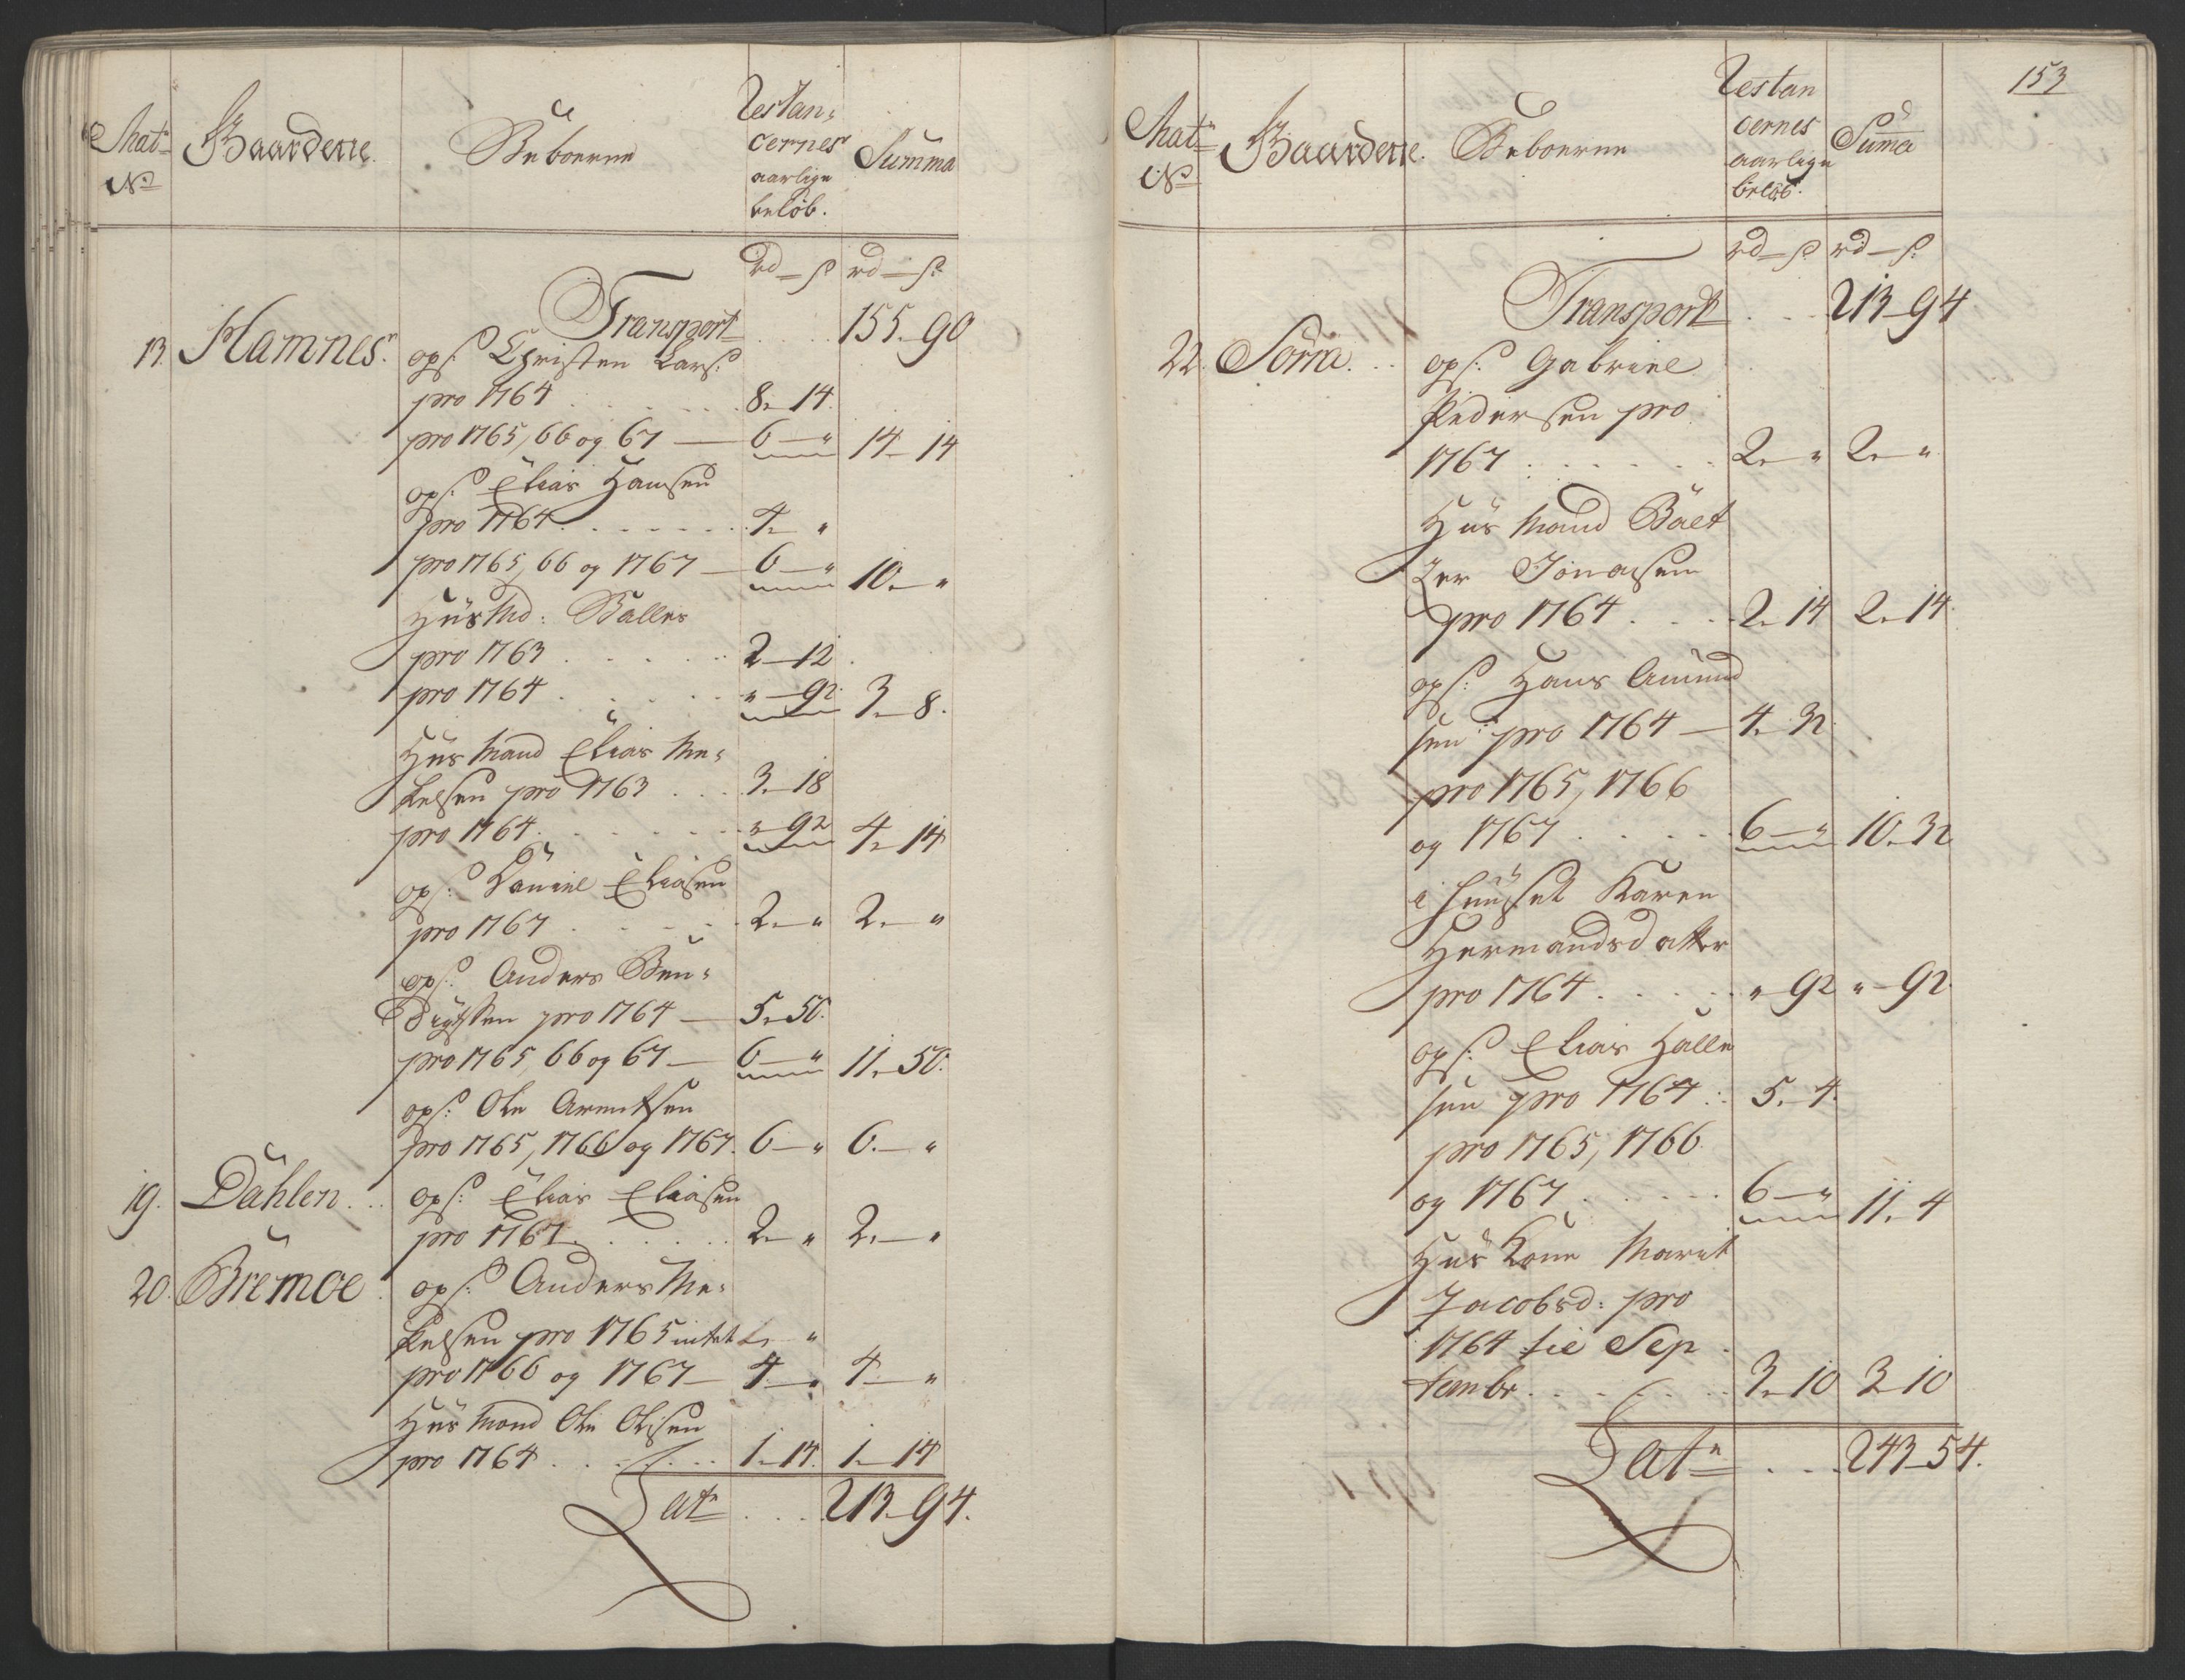 Matr No Gaardene. Beboerne Restan: cernes aarlige beløb. Summa
rd — s rd — s:
Transport . . . 155. 90
13. Hamnes. ops: Christen Lars:
pro 1764 . . . 8. 14.
pro 1765, 66 og 67 — 6 — " 14 - 14
ops: Elias Hansen
pro 1764 . . . 4. "
pro 1765, 66 og 1767 — 6 — " 10. — "
Huusmd: Baller
pro 1763 . . . 2 — 12
pro 1764 . . . " — 92. 3. — 8.
Huusmand Elias Me:
kelsen pro 1763 . . . 3. — 18
pro 1764 . . . " — 92 4. — 14
ops: Daniel Eliasen
pro 1767 . . . 2. — " 2. — "
ops: Anders Ben:
digtsen pro 1764 — 5. 50.
pro 1765, 66 og 67 — 6 — " 11. — 50.
ops: Ole Arentsen
pro 1765, 1766 og 1767. 6 — " 6. — "
19. Dahlen . . ops: Elias Eliasen
pro 1767 . . . 2. — " 2. — "
20. Bremoe . ops: Anders Me:
kelsen pro 1765 intet "
pro 1766 og 1767 — 4 — " 4. — "
Huusmand Ole Olsen
pro 1764 . . . 1. 14. 1. — 14
Latr . . . 213. 94.
153
Matr No Gaardene. Beboerne Restan cernes aarlige beløb. Suma
rd — s rd — s:
Transport . . . 213 - 94
22. Sörra. . . ops: Gabriel
Pedersen pro
1767 . . . 2. " 2. — "
Huusmand Balt
zer Jonasen
pro 1764 . . . 2. 14 2. 14.
ops: Hans Amund
sen pro 1764 — 4. 32.
pro 1765, 1766
og 1767 . . . 6 — " 10. 32
i Huuset Karen
Hermandsdatter
pro 1764 . . . " - 92 " - 92.
ops: Elias Halle
sen pro 1764 . . 5. — 4.
pro 1765, 1766
og 1767 . . . 6 — " 11. — 4
Huus Kone Marit
Jacobsd: pro
1764 til Sep
tembr. . . . 3. 10 3 10
Latr . . . 243 — 54.